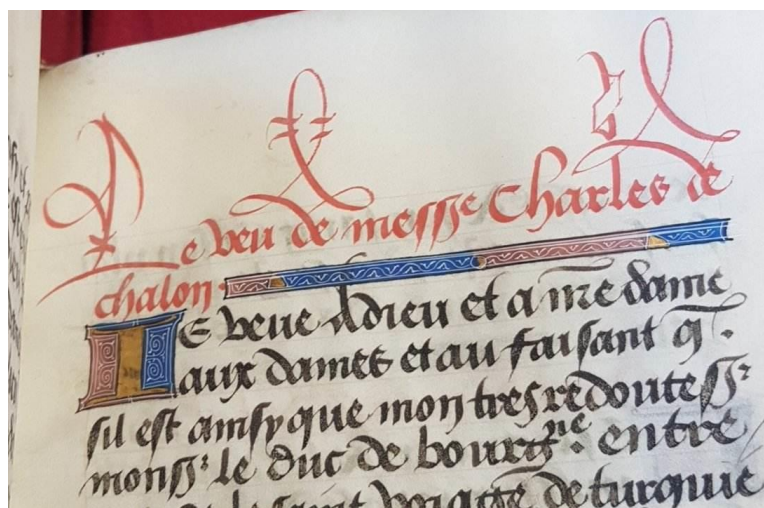 Le veu de messe Charles de
chalon
Je veue a dieu et a nre dame
aux dames et au faisant q̄
sil est ainsy que mon tres redoute ss
monss le duc de bourgne entre
de turquie